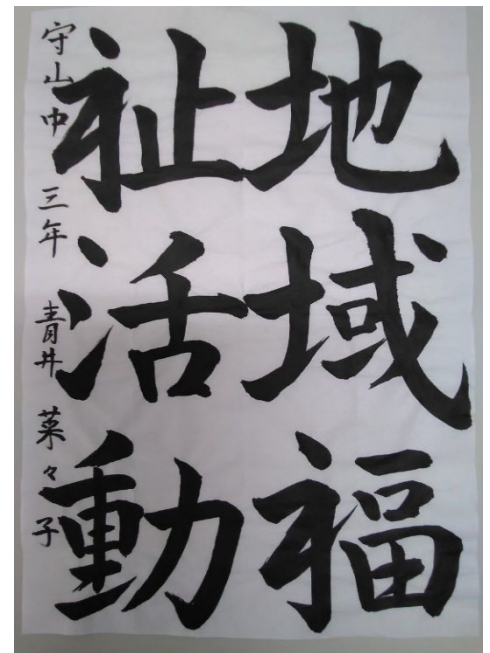 地域福
祉活動
守山中 三年 青井 菜々子